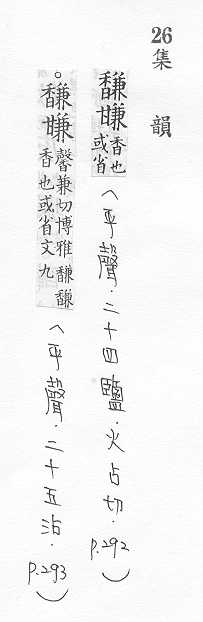 26 集韻
馦㽐 香也或省（平聲．二十四鹽．火占切．p.292）
。馦㽐 馨兼切博雅馦馦香也或省文九（平聲．二十五沾．p.293）